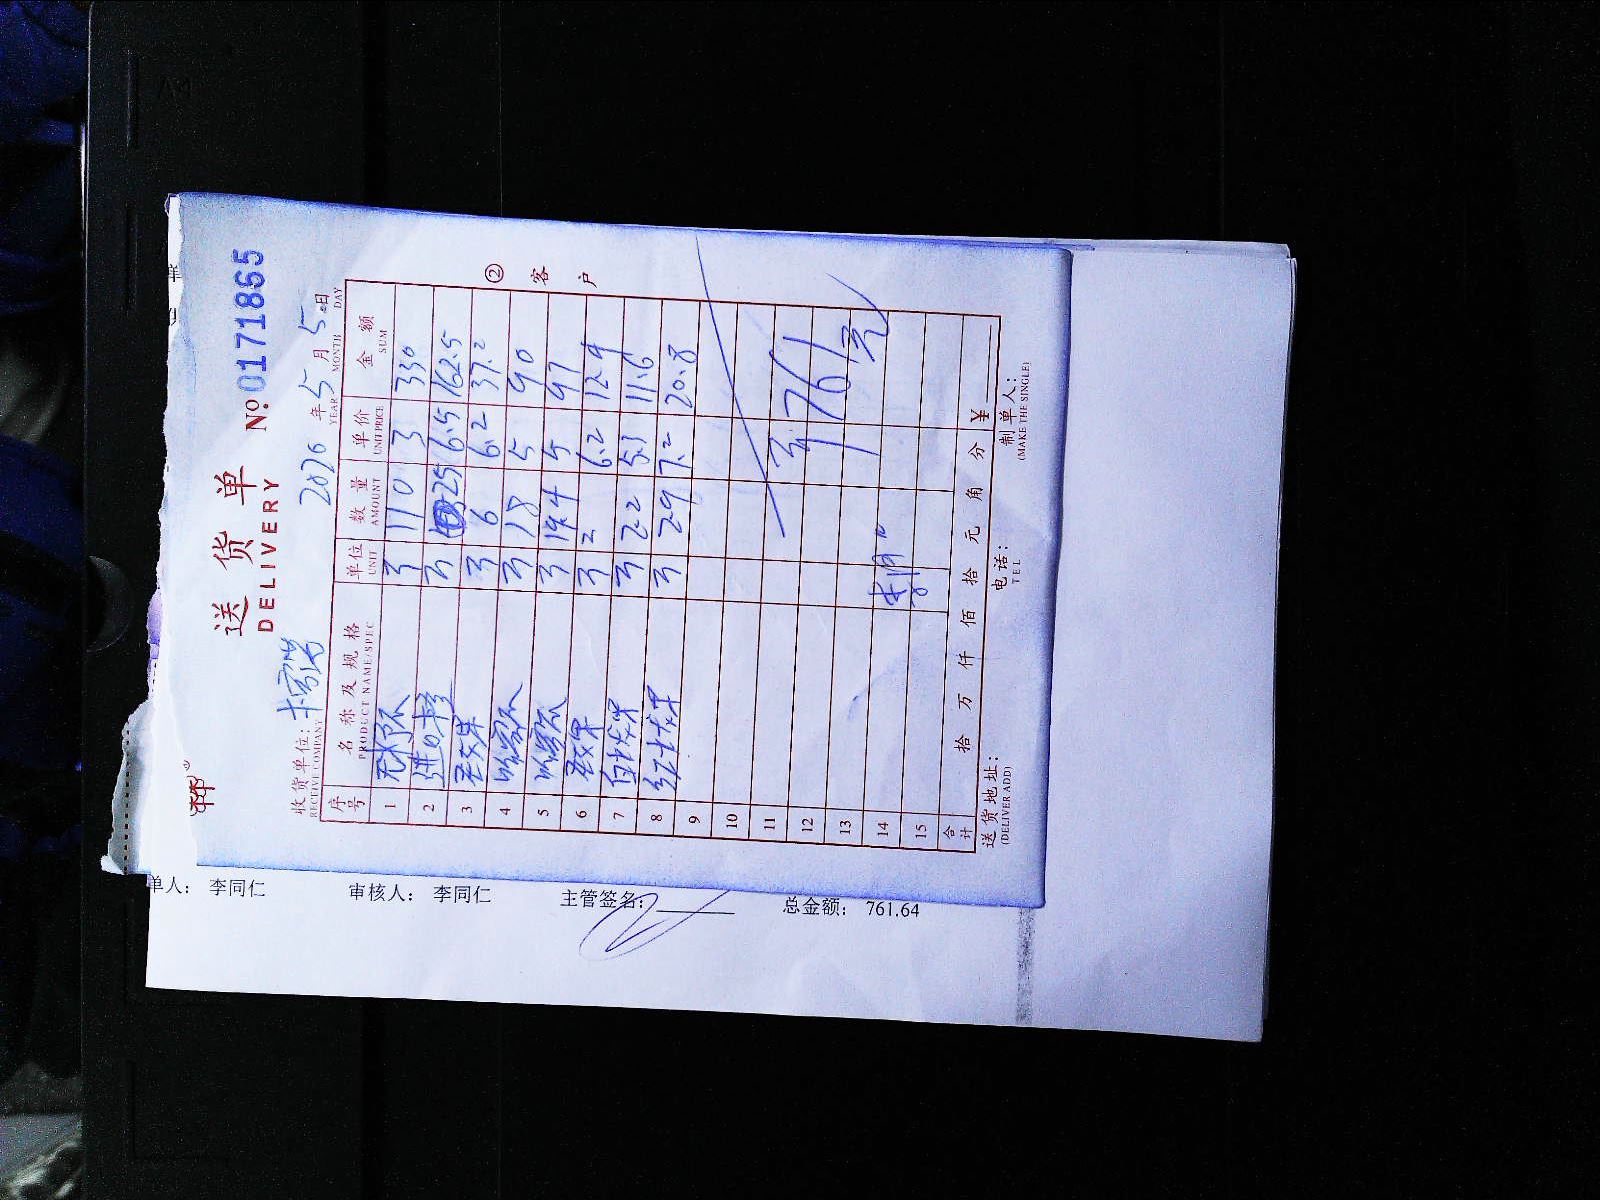 送货单
DELIVERY
№ 0171865
收货单位：
RECTIVE COMPANY
2026 年 5 月 5 日
YEAR MONTH DAY
序号 名称及规格 单位 数量 单价 金额
PRODUCT NAME/SPEC UNIT AMOUNT UNIT PRICE SUM
1 斤 110 3 330
2 进口 斤 25 6.5 162.5
3 斤 6 6.2 37.2
4 哈密瓜 斤 18 5 90
5 哈密瓜 斤 19.4 5 97
6 斤 2 6.2 12.4
7 白 斤 2.2 5.3 11.6
8 红 斤 2.9 7.2 20.8
9
10
11
12 761
13 元
14
15
合计 拾 万 仟 佰 拾 元 角 分 ¥
送货地址： 电话： 制单人：
(DELIVER ADD) TEL (MAKE THE SINGLE)
② 客户
单人： 李同仁 审核人： 李同仁 主管签名： 总金额： 761.64